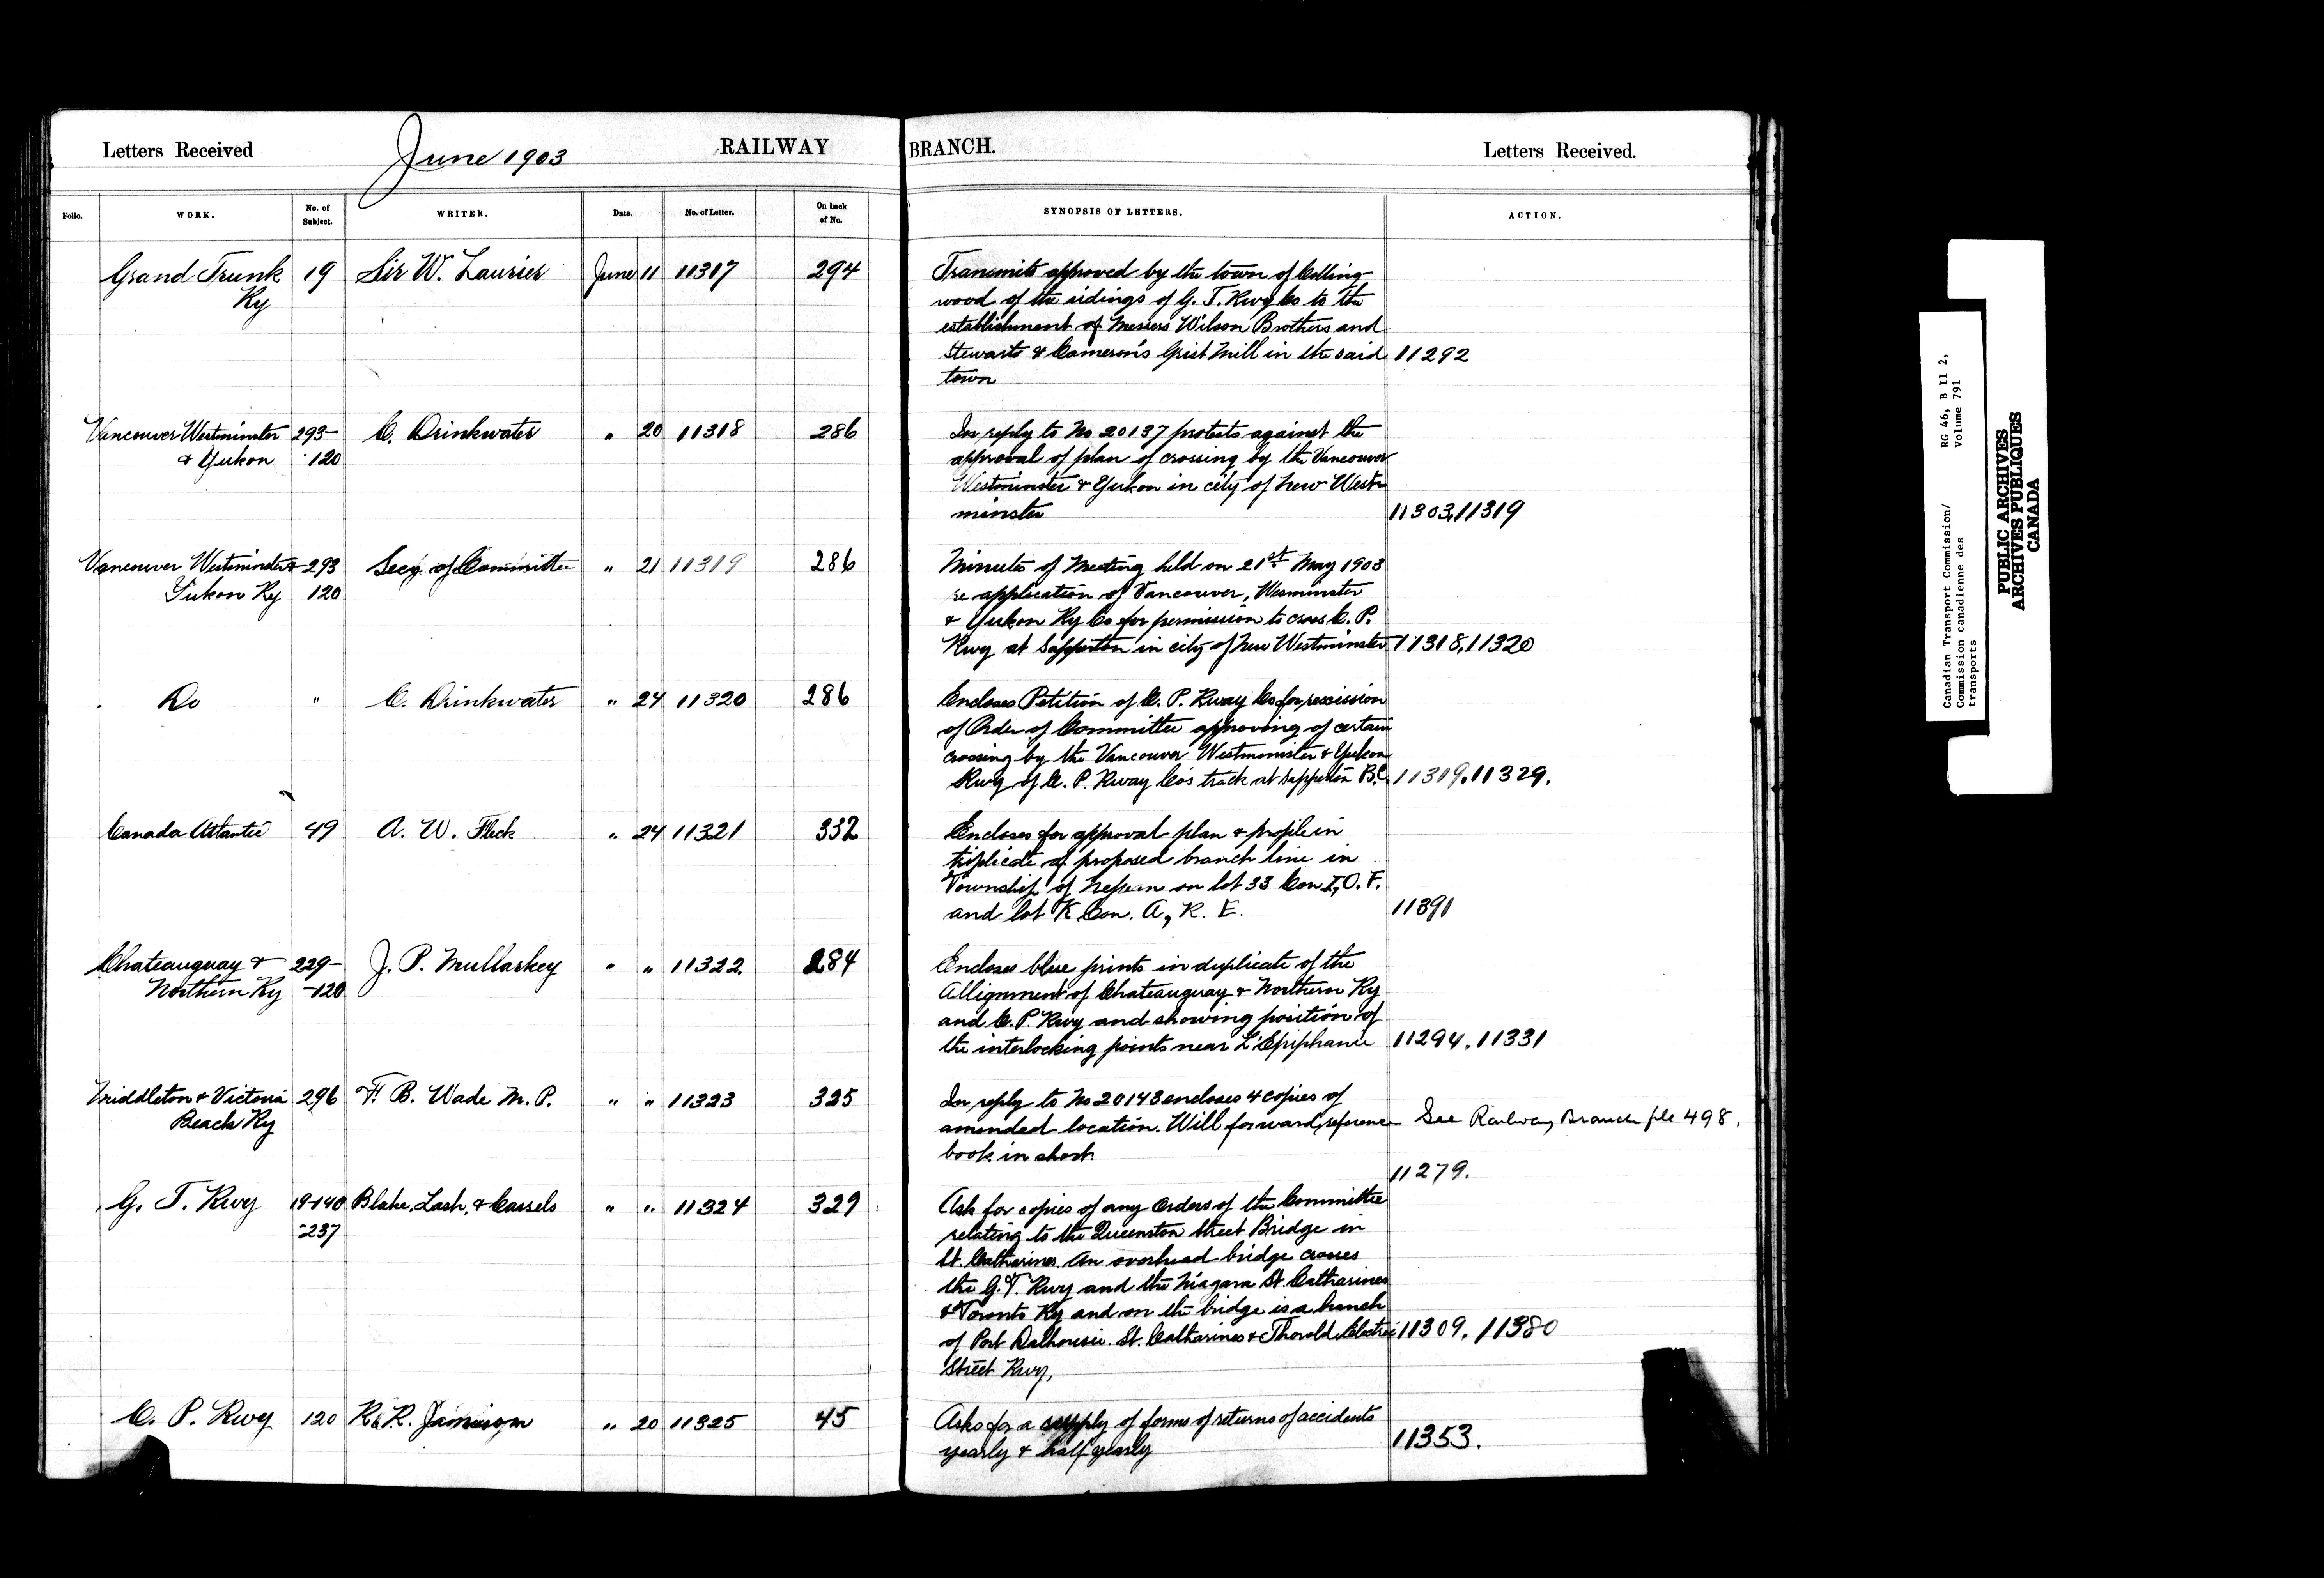 Letters Received
June 1903
RAILWAY
BRANCH.
Letters Received.
Folio.
WORK.
No. of Subject.
WRITER.
Date.
No. of Letter.
On back of No.
SYNOPSIS OF LETTERS.
ACTION.
Grand Trunk 19 Sir W. Laurier June 11 11317 294
Ky
Transmits approved by the town of Colling-
wood of the sidings of G. T. Rwy Co to the
establishment of Messers Wilson Brothers and
Stewarts & Cameron's Grist Mill in the said 11292
town
Vancouver Westminster 293- C. Drinkwater " 20 11318 286
& Yukon 120
In reply to No 20137 protests against the
approval of plan of crossing by the Vancouver
Westminster & Yukon in city of New West-
minster 11303,11319
Vancouver Westminster & 293 Secy of Committee " 21 11319 286
Yukon Ry 120
Minutes of Meeting held on 21st May 1903
re application of Vancouver, Wesminster
& Yukon Ry Co for permission to cross C. P.
Rwy at Sapperton in city of New Westminster 11318,11320
Do " C. Drinkwater " 24 11320 286
Encloses Petition of C. P. Rway Co for rescission
of Order of Committee approving of certain
crossing by the Vancouver Westmonister & Yukon
Rwy of C. P. Rway Co's track at Sapperton B.C. 11319.11329.
Canada Atlantic 49 A. W. Fleck " 24 11321 332
Encloses for approval plan & profile in
triplicate of proposed branch line in
Township of Nepean on lot 33 Con I, O. F.
and lot K Con. A, R. F. 11391
Chateauguay & 229- J. P. Mullarkey " " 11322. 284
Northern Ry -120
Encloses blue prints in duplicate of the
Allignment of Chateauguay & Northern Ry
and C. P. Rwy and showing position of
the interlocking points near L'Epiphanie 11294.11331
Middleton & Victoria 296 F. B. Wade M. P. " " 11323 325
Beach Ry
In reply to No 20148 encloses 4 copies of
amended location. Will forward reference See Railway Branch file 498.
book in short.
11279.
G. T. Rwy 19-140 Blake, Lash, & Cassels " " 11324 329
-237
Ask for copies of any Orders of the Committee
relating to the Queenston Street Bridge in
St. Catharines. An overhead bridge crosses
the G.T. Rwy and the Niagara St. Catharines
& Toronto Ry and on the bridge is a branch
of Port Dalhousie. St. Catharines & Thorold Electric 11309. 11380
Street Rwy,
C. P. Rwy 120 R. R. Jamieson " 20 11325 45
Asks for a supply of forms of returns of accidents
yearly & half yearly 11353.
Canadian Transport Commission/
Commission canadienne des
transports
RG 46, B II 2,
Volume 791
PUBLIC ARCHIVES
ARCHIVES PUBLIQUES
CANADA